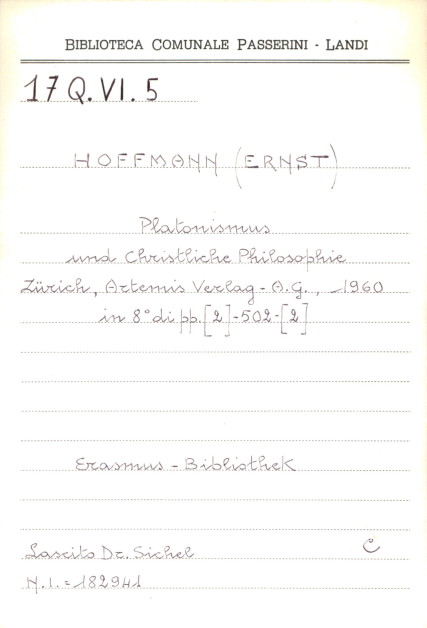 BIBLIOTECA COMUNALE PASSERINI - LANDI
17 Q. VI. 5
HOFFMANN (ERNST)
Platonismus
und Christliche Philosophie
Zürich, Artemis Verlag - A.G., 1960
in 8° di pp. [2]-502-[2]
Erasmus - Bibliothek
Lascito Dr. Sichel C
N.I. = 182941